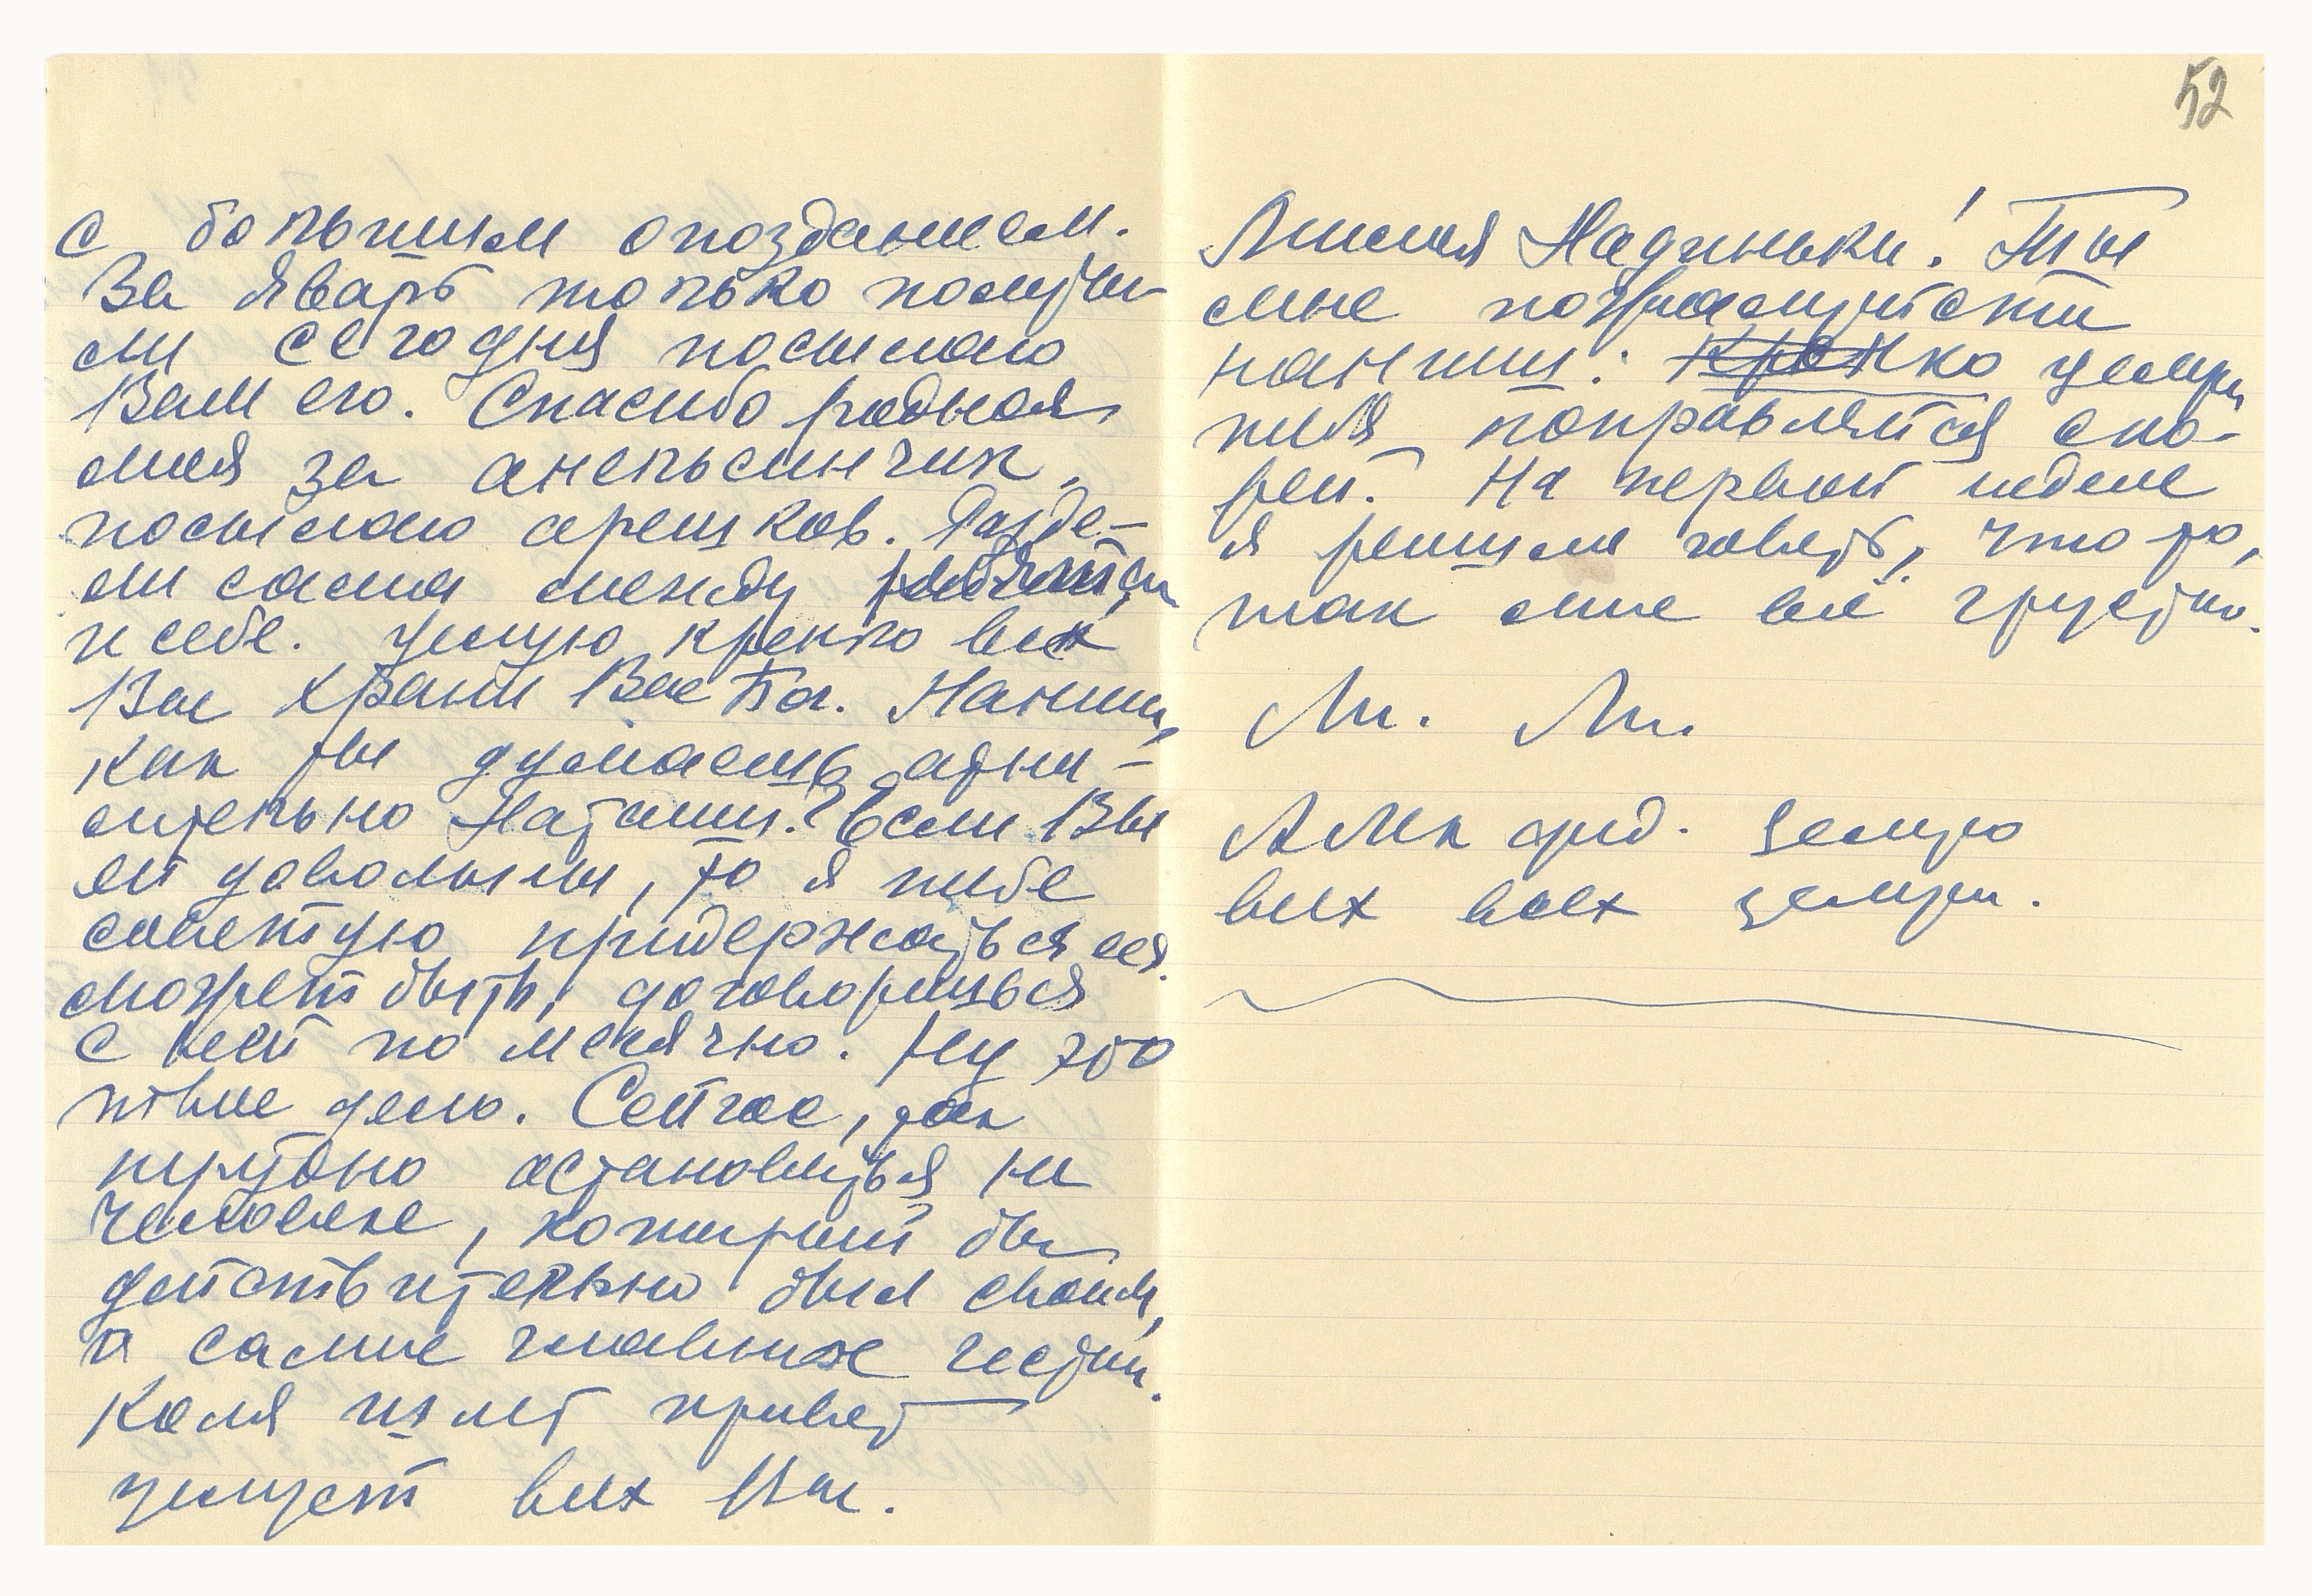 с большим опозданием.
За январь только получи-
ли сегодня посылаю
Вам его. Спасибо родная
моя за апельсинчик,
посылаю орешков. Разде-
ли сама между
и себе. Целую крепко всех
Вас Храни Вас Бог. Напиши,
как ты думаешь, относи-
сительно Наташи? Если Вы
ей довольны, то я тебе
советую придержаться её.
может быть, договоришься
с ней по месячно. Ну это
твое дело. Сейчас, так
трудно остановиться на
человеке, который бы
действительно был своим,
а самое главное честн.
Коля шлет привет
целует всех Вас.
52
Надиньки! Ты
мне пожалуйста
напиши: Крепко целую
тебя поправляйся ско-
рей. На первой неделе
я решила говеть, что то,
так мне всё грустно.
Ал. целую
всех всех целую.